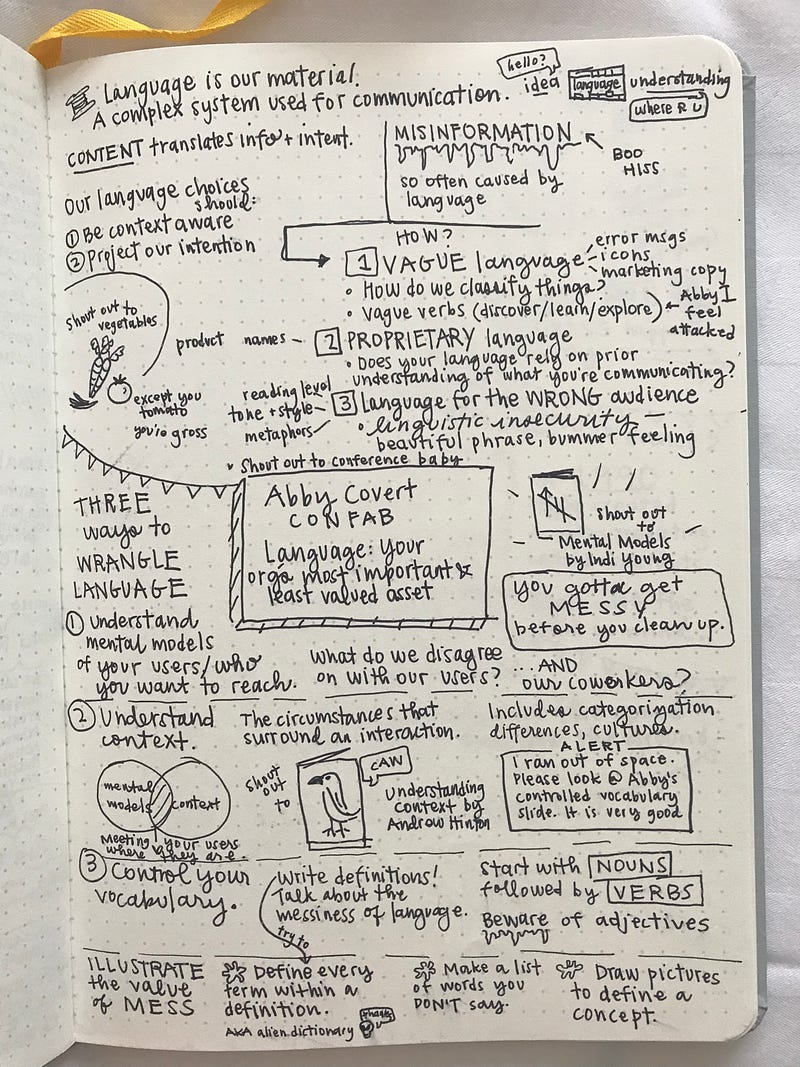 Language is our material.
A complex system used for communication.
hello?
idea language understanding
where R U
CONTENT translates info + intent.
MISINFORMATION
BOO
HISS
so often caused by
language
Our language choices
should:
① Be context aware
② Project our intention
HOW?
1 VAGUE language
error msgs
icons
marketing copy
• How do we classify things?
• Vague verbs (discover/learn/explore)
Abby I
feel
attacked
shout out to
vegetables
except you
tomato
you're gross
product names –
2 PROPRIETARY language
• Does your language rely on prior
understanding of what you're communicating?
reading level
tone + style
metaphors
3 Language for the WRONG audience
• linguistic insecurity —
beautiful phrase, bummer feeling
Shout out to conference baby
Abby Covert
CONFAB
Language: Your
orgs most important &
least valued asset
shout out
to
Mental Models
by Indi Young
You gotta get
MESSY
before you clean up.
THREE
ways to
WRANGLE
LANGUAGE
① Understand
mental models
of your users/who
you want to reach.
What do we disagree
on with our users?
...AND
our coworkers?
② Understand
context.
The circumstances that
surround an interaction.
Includes categorization
differences, cultures.
mental
models
context
Meeting your users
where they are.
shout
out
to
CAW
Understanding
context by
Andrew Hinton
ALERT
I ran out of space.
Please look @ Abby's
controlled vocabulary
slide. It is very good
③ Control your
vocabulary.
Write definitions!
Talk about the
messiness of language.
try to
Start with NOUNS
followed by VERBS
Beware of adjectives
ILLUSTRATE
the value
of MESS
Define every
term within a
definition.
AKA alien dictionary
thanks
Make a list
of words you
DON'T say.
Draw pictures
to define a
concept.